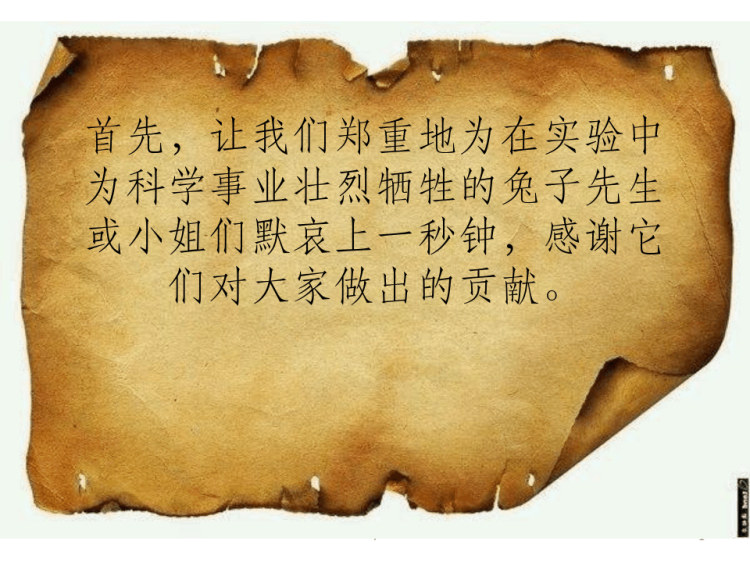 首先，让我们郑重地为在实验中
为科学事业壮烈牺牲的兔子先生
或小姐们默哀上一秒钟，感谢它
们对大家做出的贡献。